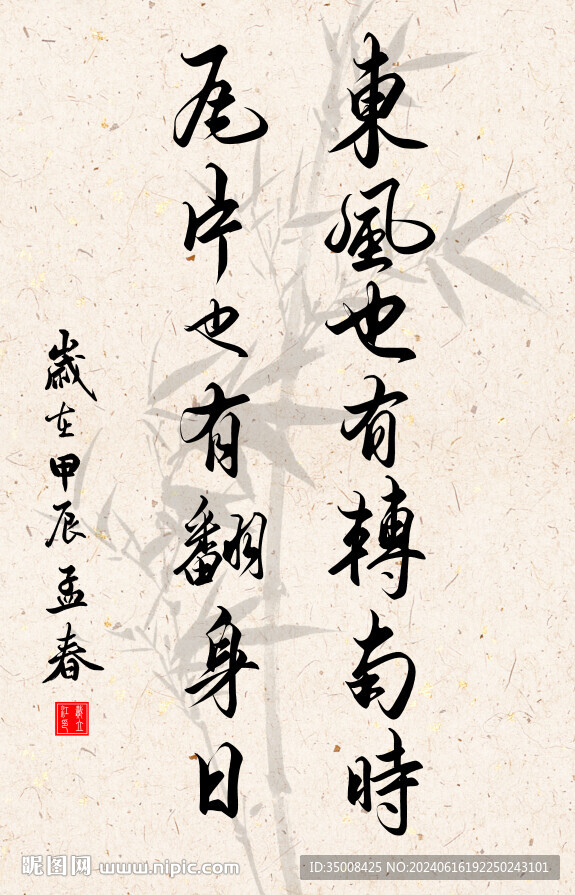 東風也有轉南時
瓦片也有翻身日
歲在甲辰孟春
昵图网 www.nipic.com
ID:35008425 NO:20240616192250243101